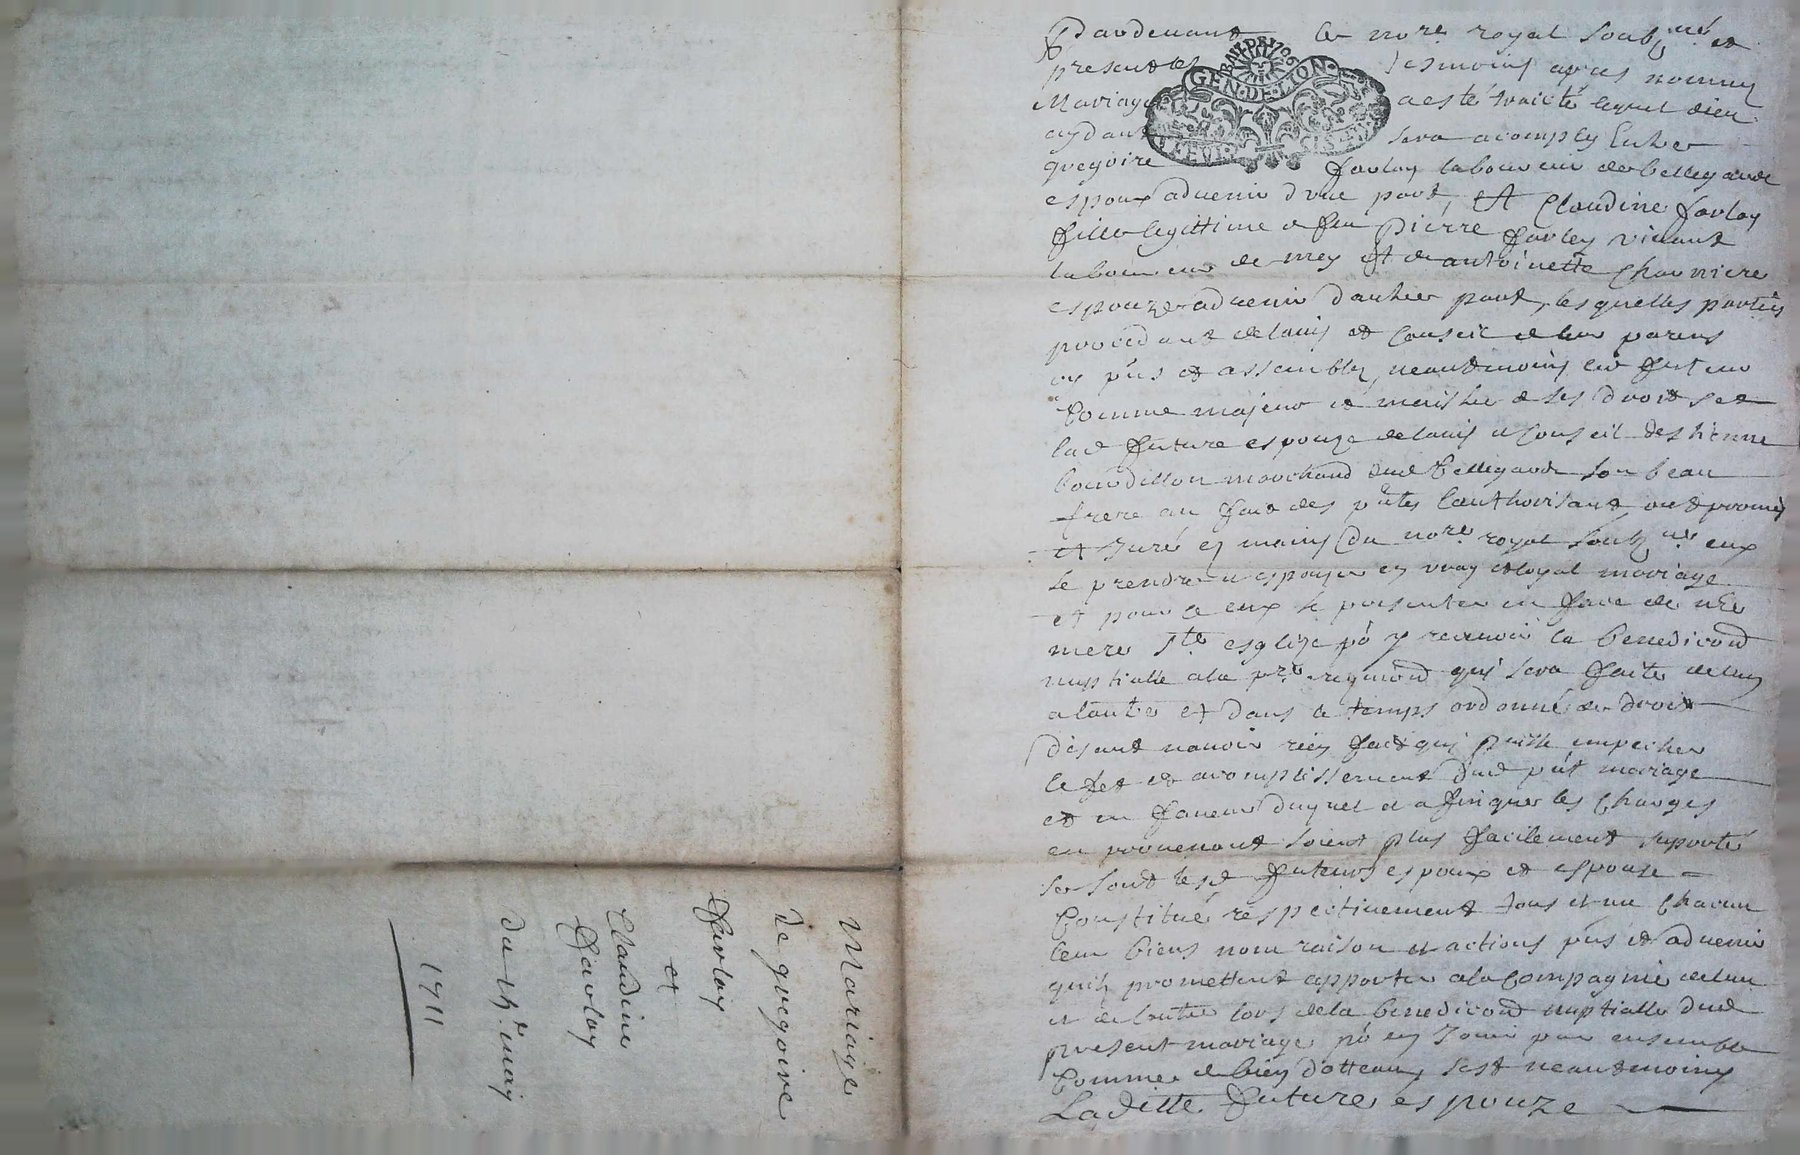 Pardevant le no.re royal soubz.né et
presentz les tesmoins apres nommez
Mariage a esté traicté lequel dieu
aydant sera acomply Entre
gregoire farlay laboureur de bellegarde
espoux advenir d'vne part, Et Claudine farlay
fille legittime de feu Pierre farlay vivant
laboureur de mey Et de antoinette Charviere
espouze advenir d'autre part, lesquelles parties
procedant de lavis et conseil de leur parens
cy pñs et assemblez, neantmoins led futeur
comme majeur et maistre de ses droit et
lad future espouze de lavis et conseil d'estienne
bourdillon marchand dud bellegarde son beau
frere au fait des pñtes l'authorisant ont promis
et Juré es mains du no.re royal soubz.né eux
se prendre et espouser en vray et loyal mariage
et pour ce eux se presenter en face de nre
mere s.te esglize po y recevoir la benediction
nuptialle a la p.re requisition quy sera faite de lun
a lautre et dans le temps ordonné de droit
disant navoir rien fait quy puisse empecher
le fet et acomplissement dud pñt mariage
et en faveur duquel et afin que les charges
en provenant soient plus facilement suporté
se sont lesd futeurs espoux et espouse
Constitué respectivement tous et un chacun
leur biens nom raison et actions pñs et advenir
quilz promettent apporter a la Compagnie de lun
et de lautre lors de la benediction nuptialle dud
present mariage po en Jouir par ensemble
Comme de bien dottaux, sest neantmoins
Laditte future espouze
GEN·DE·LION
Mariage
de gregoire
farlay
et
Claudine
farlay
du may
1711